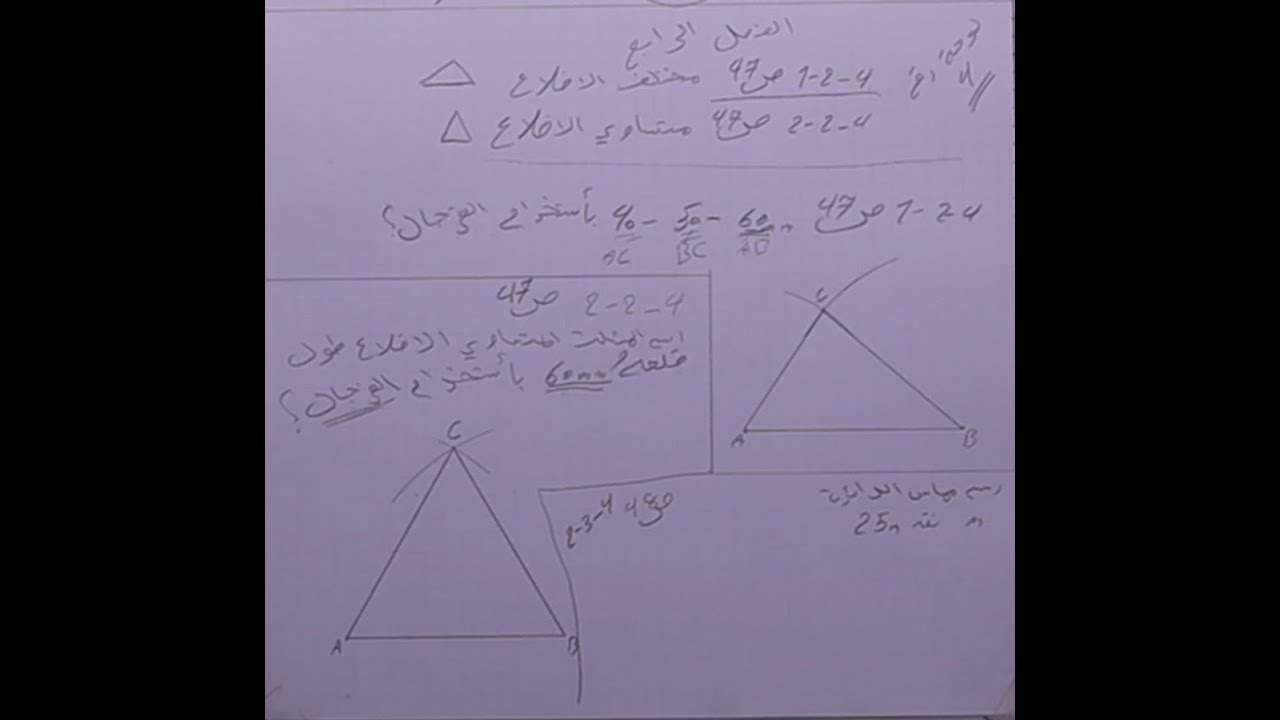 الفصل الرابع
4-2-1 ص47 مختلف الاضلاع
4-2-2 ص47 متساوي الاضلاع
4-2-1 ص47 60mm - 50 - 40 بأستخراج الفرجال؟
AB BC AC
C
A B
4-2-2 ص47
ارسم المثلث المتساوي الاضلاع طول
ضلعه 60mm بأستخراج الفرجال؟
C
A B
رسم مماس الدائرة
نق 25m
4-3-2 ص48